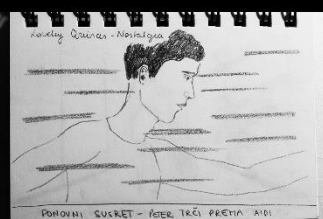 Lovely Quinces - Nostalgia
PONOVNI SUSRET - PETER TRČI PREMA AIDI